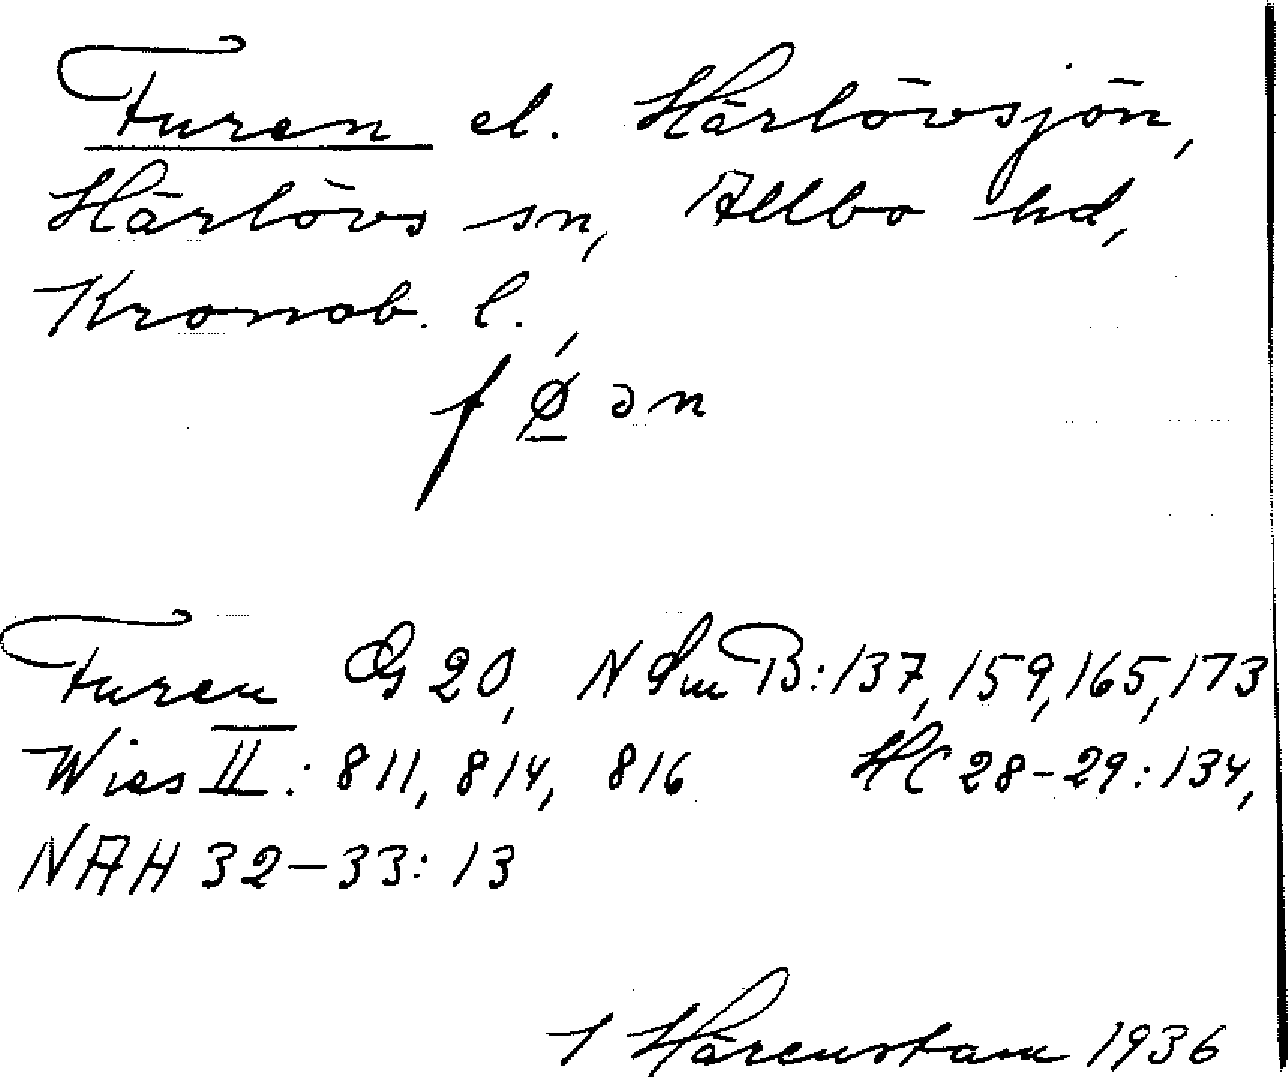 Furen el. Härlövsjön,
Härlövs sn, Allbo hd,
Kronob. l.
f ǿ̱ ə n
Furen G 20, N Sm B: 137, 159, 165, 173
Wies II: 811, 814, 816 HC 28-29: 134,
NAH 32-33: 13
I Härenstam 1936